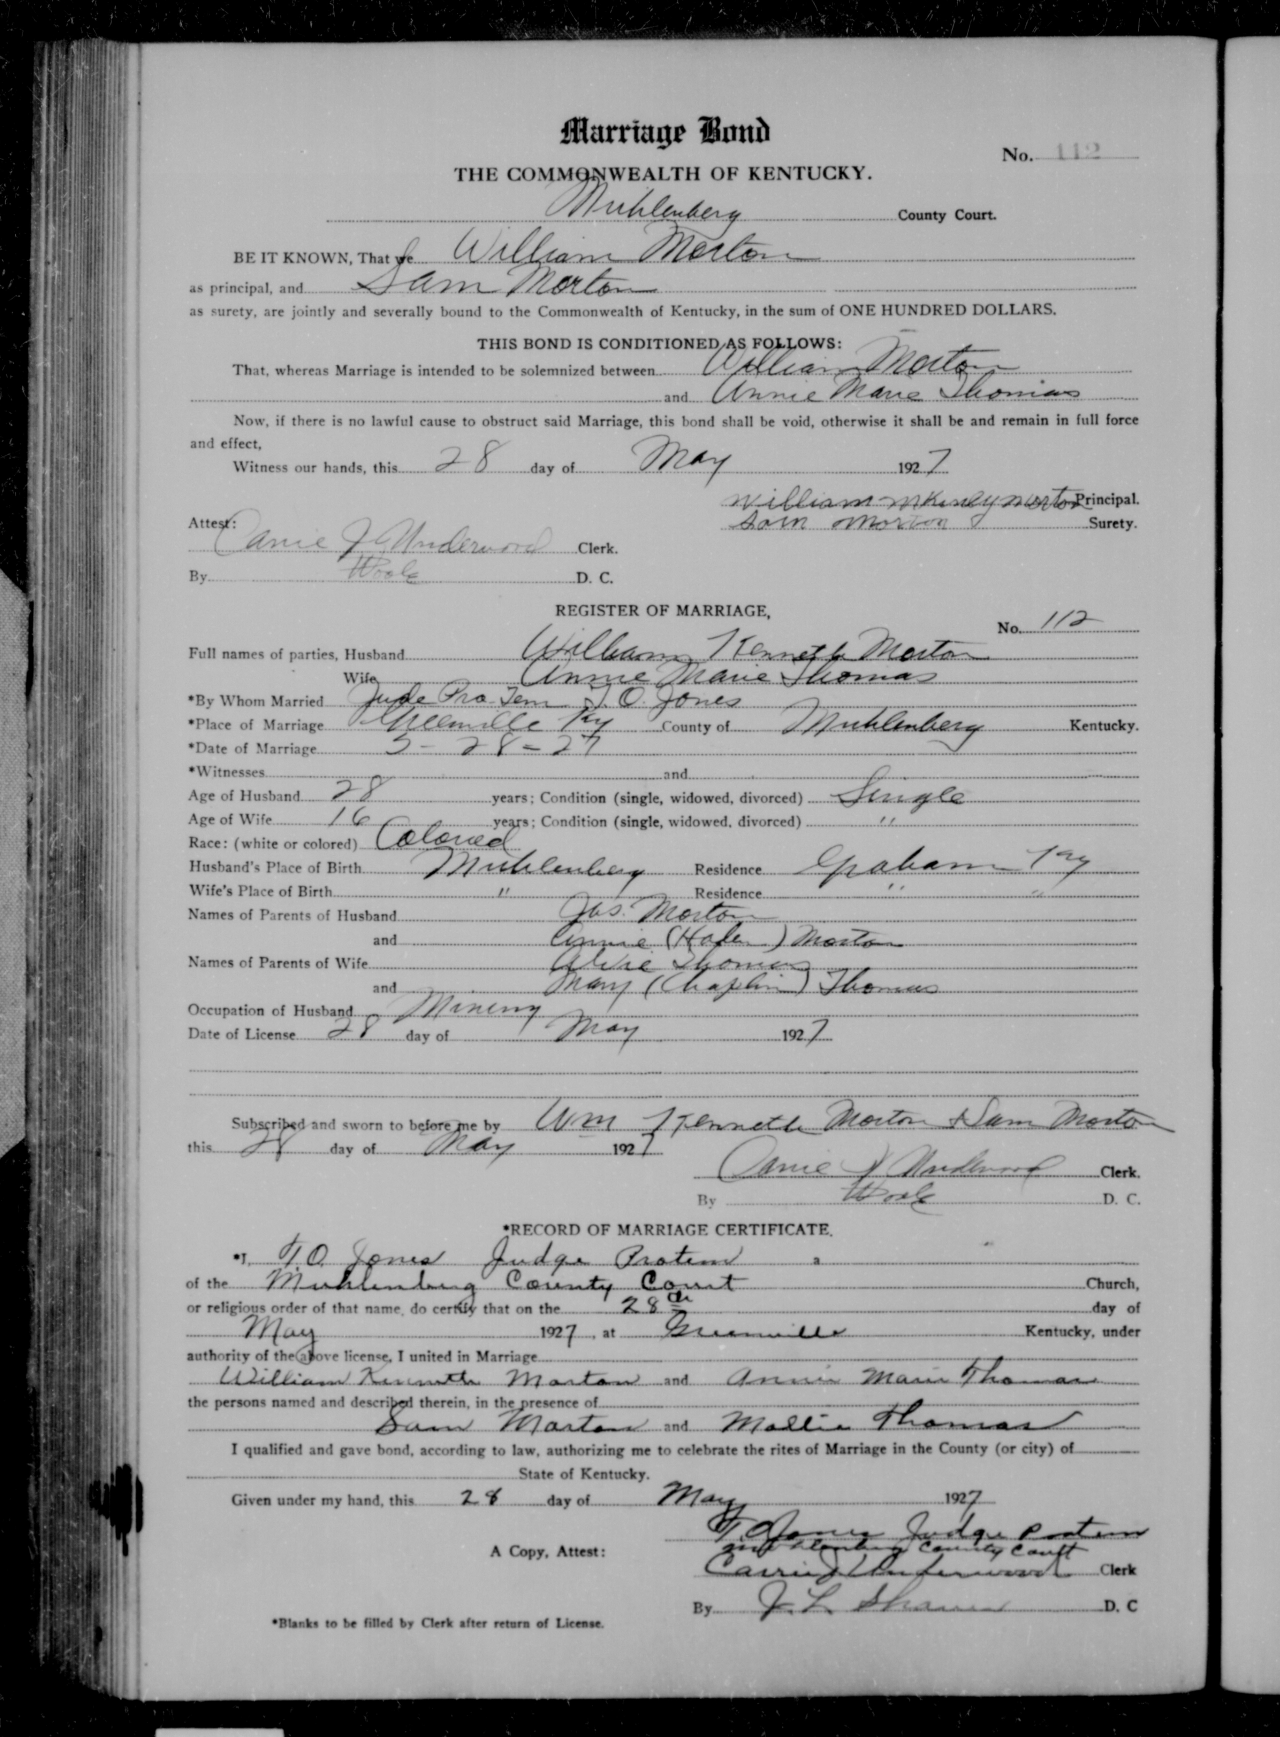 Marriage Bond
No. 112
THE COMMONWEALTH OF KENTUCKY.
Muhlenberg County Court.
BE IT KNOWN, That we William Morton
as principal, and Sam Morton
as surety, are jointly and severally bound to the Commonwealth of Kentucky, in the sum of ONE HUNDRED DOLLARS.
THIS BOND IS CONDITIONED AS FOLLOWS:
That, whereas Marriage is intended to be solemnized between William Morton
and Annie Marie Thomas
Now, if there is no lawful cause to obstruct said Marriage, this bond shall be void, otherwise it shall be and remain in full force
and effect,
Witness our hands, this 28 day of May 1927
William McKinley Morton Principal.
Attest: Sam Morton Surety.
Carrie J Underwood Clerk.
By D. C.
REGISTER OF MARRIAGE,
No. 112
Full names of parties, Husband William Kenneth Morton
Wife Annie Marie Thomas
*By Whom Married Jude Pro Tem T. O. Jones
*Place of Marriage Greenville Ky County of Muhlenberg Kentucky.
*Date of Marriage 5-28-27
*Witnesses and
Age of Husband 28 years; Condition (single, widowed, divorced) Single
Age of Wife 16 years; Condition (single, widowed, divorced) "
Race: (white or colored) Colored
Husband's Place of Birth Muhlenberg Residence Graham Ky
Wife's Place of Birth " Residence " "
Names of Parents of Husband Jas. Morton
and Annie ( ) Morton
Names of Parents of Wife Thomas
and Mary (Chaplin) Thomas
Occupation of Husband Mining
Date of License 28 day of May 1927
Subscribed and sworn to before me by Wm Kenneth Morton & Sam Morton
this 28 day of May 1927
Carrie J Underwood Clerk.
By D. C.
*RECORD OF MARRIAGE CERTIFICATE.
*I, T. O. Jones Judge Protem a
of the Muhlenberg County Court Church,
or religious order of that name, do certify that on the 28th day of
May 1927, at Greenville Kentucky, under
authority of the above license, I united in Marriage
William Kenneth Morton and Annie Marie Thomas
the persons named and described therein, in the presence of
Sam Morton and Mollie Thomas
I qualified and gave bond, according to law, authorizing me to celebrate the rites of Marriage in the County (or city) of
State of Kentucky.
Given under my hand, this 28 day of May 1927
T. O. Jones Judge Protem
Muhlenberg County Court
A Copy, Attest: Carrie J Underwood Clerk
By J. L. D. C
*Blanks to be filled by Clerk after return of License.